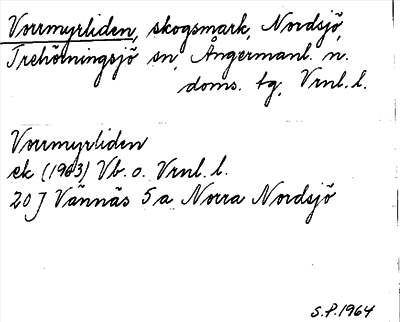 Vorrmyrliden, skogsmark, Nordsjö,
Trehörningsjö sn, Ångermanl. n.
doms. tg, Vrnl. l.
Vorrmyrliden
ek (1963) Vb. o. Vrnl. l.
20 J Vännäs 5a Norra Nordsjö
S.P. 1964